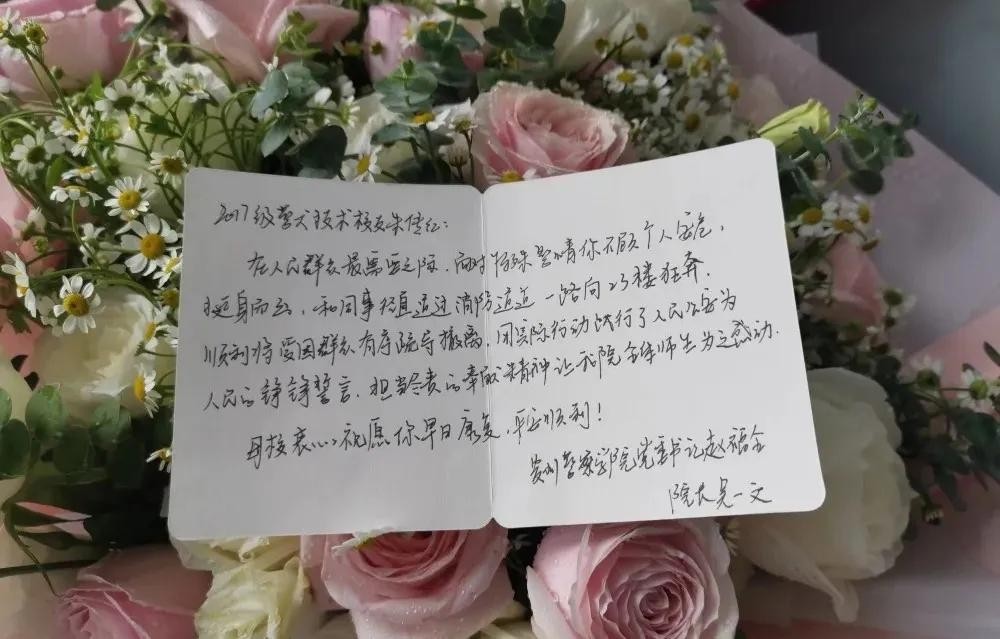 2017级警犬技术校友朱传红:
在人民群众最需要之际,面对特殊警情你不顾个人安危,
挺身而出,和同事们通过消防通道一路向23楼狂奔,
顺利将受困群众有序疏导撤离,用实际行动践行了人民公安为
人民的铮铮誓言,担当负责的奉献精神让我院全体师生为之感动.
母校衷心祝愿你早日康复,平安顺利!
贵州警察学院党委书记赵福全
院长吴一文